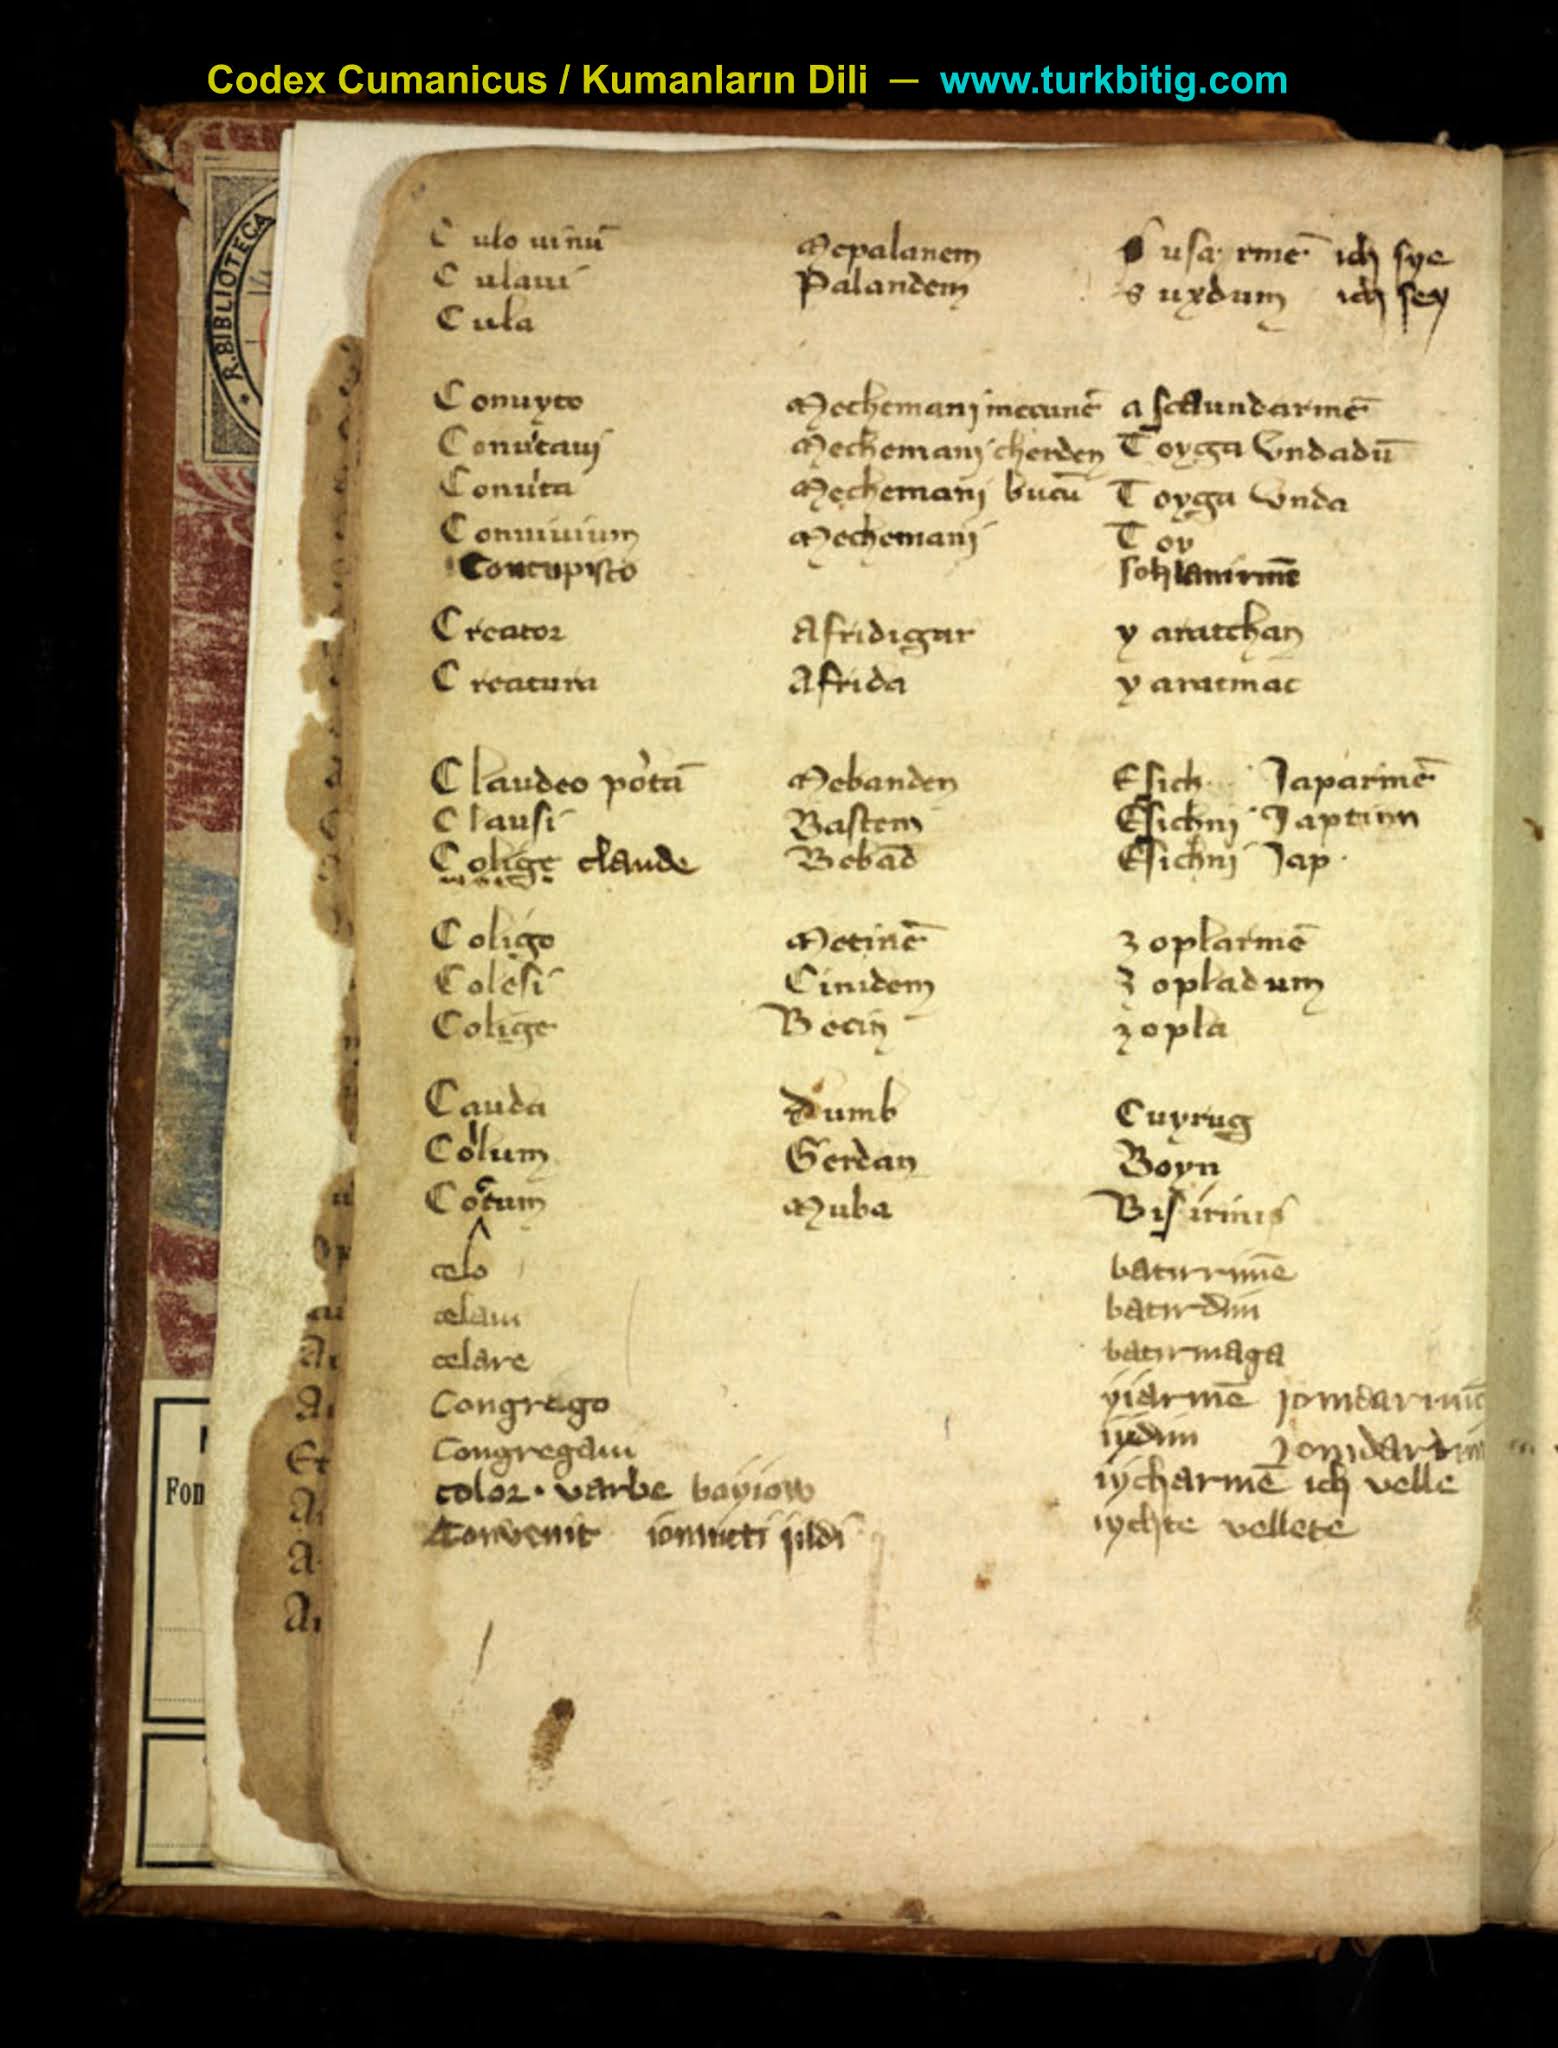 Codex Cumanicus / Kumanların Dili — www.turkbitig.com
R. BIBLIOTECA
Culo uinū Mepalanem Susarmē ich sye
Culaui Palandem Suxdum ich sey
Cula
Conuyto Mechemanj mecunē
Conuitaui Mechemanj cherden Toyga vndadū
Conuita Mechemanj bucū Toyga vnda
Conuiuium Mechemanj Toy
Concupisco
Creator Afridigar yaratchan
Creatura Afrida yaratmac
Claudeo portā Mebanden Esich Japarmē
Clausi Bastem Esichnj Japtim
Colige claude Beband Esichnj Jap
Coligo Mecinē zoplarmē
Colesi Cinidem zopladum
Colige Becin zopla
Cauda dumb Cuyrug
Collum Gerdan Boyn
Coctum Muba Bisirmis
celo baturrmē
celaui baturdim
celare baturmaga
Congrego yiarmē jomdarmē
Congregaui iydim jomdardim
color · varbe boyiow iycharmē ich velle
Convenit iychte vellete
Fon